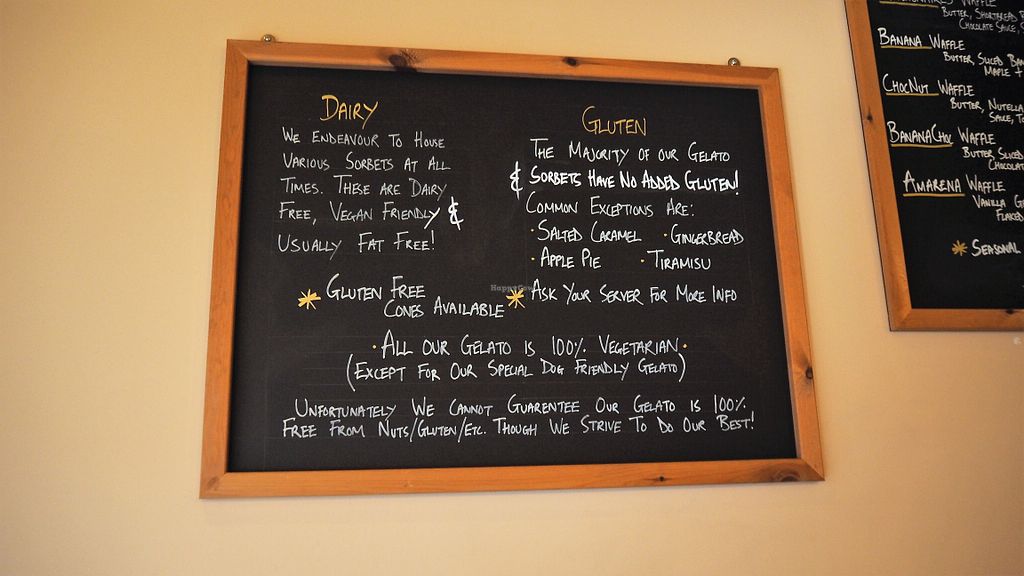 Dairy
We Endeavour To House
Various Sorbets at All
Times. These are Dairy
Free, Vegan Friendly &
Usually Fat Free!
* Gluten Free
Cones Available
Gluten
The Majority of our Gelato
& Sorbets Have No Added Gluten!
Common Exceptions Are:
· Salted Caramel · Gingerbread
· Apple Pie · Tiramisu
* Ask Your Server For More Info
· All Our Gelato is 100% Vegetarian ·
(Except For Our Special Dog Friendly Gelato)
Unfortunately We Cannot Guarentee Our Gelato is 100%
Free From Nuts/Gluten/Etc. Though We Strive To Do Our Best!
HappyCow
Waffle
Butter, Shortbread
Chocolate Sauce,
Banana Waffle
Butter, Sliced
Maple +
ChocNut Waffle
Butter, Nutella
Sauce,
BananaChoc Waffle
Butter, Sliced
Amarena Waffle
Vanilla
Flaked
* Seasonal